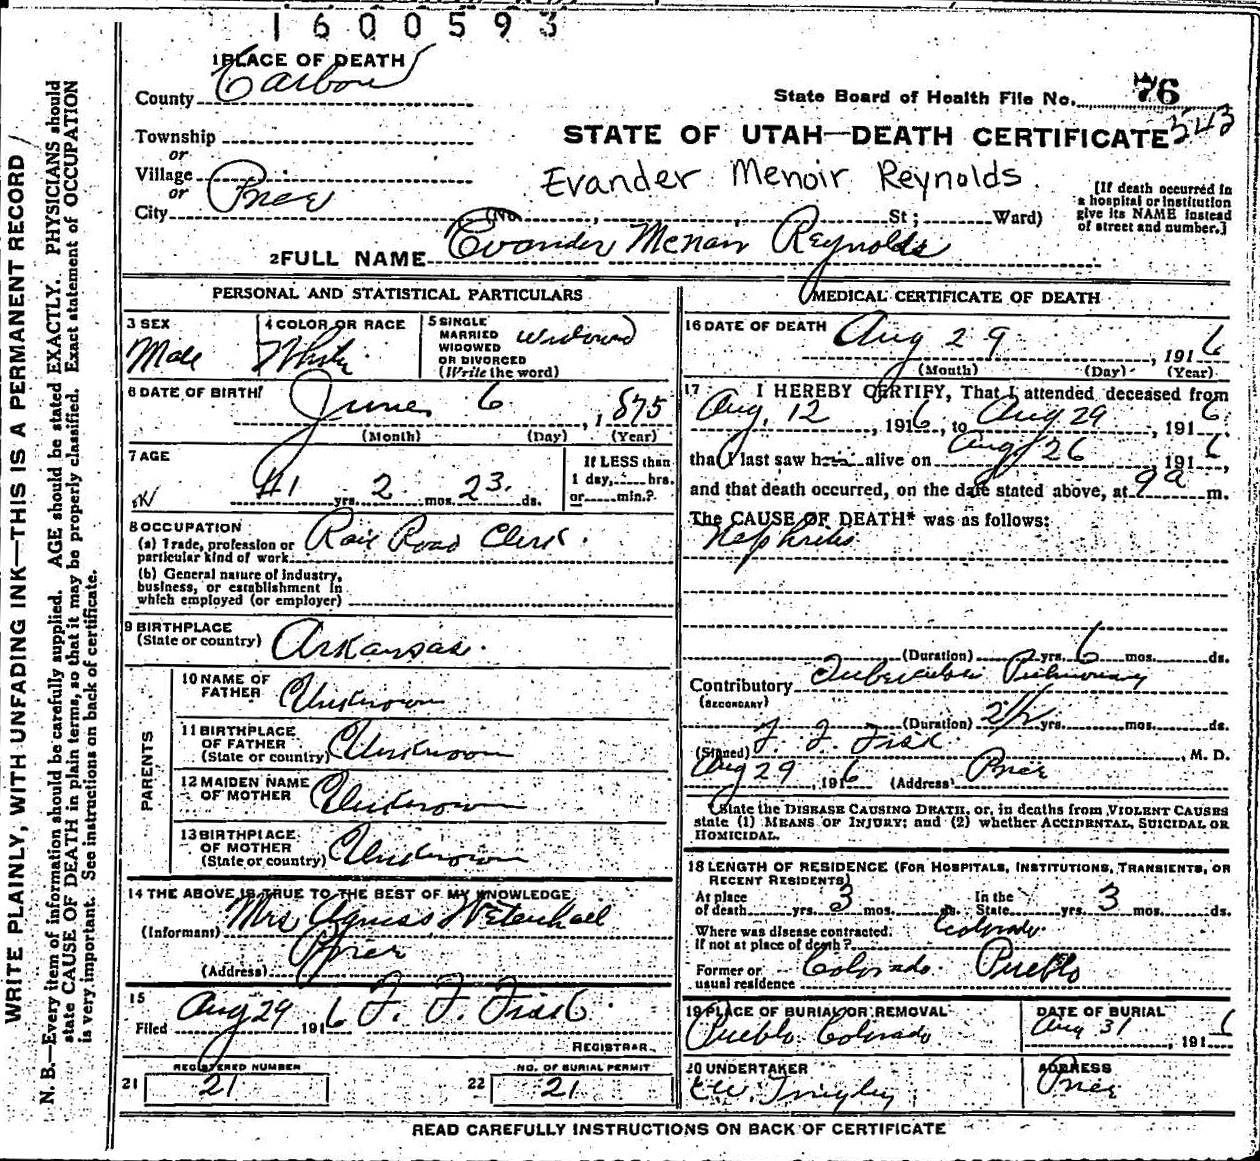 1600593
1 PLACE OF DEATH
County Carbon
State Board of Health File No. 76
343
Township
or
Village
or
City Price (No , St ; Ward)
STATE OF UTAH—DEATH CERTIFICATE
Evander Menoir Reynolds
[If death occurred in
a hospital or institution
give its NAME instead
of street and number.]
2 FULL NAME Evander Menoir Reynolds
PERSONAL AND STATISTICAL PARTICULARS
3 SEX
Male
4 COLOR OR RACE
White
5 SINGLE
MARRIED
WIDOWED
OR DIVORCED
(Write the word)
Widowed
6 DATE OF BIRTH
June 6, 1875
(Month) (Day) (Year)
7 AGE
41 yrs. 2 mos. 23 ds.
If LESS than
1 day, hrs.
or min.?
8 OCCUPATION
(a) Trade, profession or
particular kind of work Rail Road Clerk.
(b) General nature of industry,
business, or establishment in
which employed (or employer)
9 BIRTHPLACE
(State or country) Arkansas.
PARENTS
10 NAME OF
FATHER Unknown
11 BIRTHPLACE
OF FATHER
(State or country) Unknown
12 MAIDEN NAME
OF MOTHER Unknown
13 BIRTHPLACE
OF MOTHER
(State or country) Unknown
14 THE ABOVE IS TRUE TO THE BEST OF MY KNOWLEDGE
(Informant) Mrs. Agness
(Address) Price
15
Filed Aug 29 1916 F. F. Fisk
REGISTRAR.
21 REGISTERED NUMBER
21
22 NO. OF BURIAL PERMIT
21
MEDICAL CERTIFICATE OF DEATH
16 DATE OF DEATH Aug 29, 1916
(Month) (Day) (Year)
17 I HEREBY CERTIFY, That I attended deceased from
Aug. 12, 1916, to Aug 29, 1916,
that I last saw him alive on Aug 26, 1916,
and that death occurred, on the date stated above, at 9 a m.
The CAUSE OF DEATH* was as follows:
Nephritis
(Duration) yrs. 6 mos. ds.
Contributory Tuberculosis Pulmonary
(SECONDARY)
(Duration) 2 1/2 yrs. mos. ds.
(Signed) F. F. Fisk, M. D.
Aug 29 1916 (Address) Price
State the DISEASE CAUSING DEATH, or, in deaths from VIOLENT CAUSES
state (1) MEANS OF INJURY; and (2) whether ACCIDENTAL, SUICIDAL OR
HOMICIDAL.
18 LENGTH OF RESIDENCE (FOR HOSPITALS, INSTITUTIONS, TRANSIENTS, OR
RECENT RESIDENTS)
At place
of death yrs. 3 mos. ds. In the
State yrs. 3 mos. ds.
Where was disease contracted.
If not at place of death? Colorado.
Former or
usual residence Colorado. Pueblo
19 PLACE OF BURIAL OR REMOVAL
Pueblo Colorado
DATE OF BURIAL
Aug 31, 1916
20 UNDERTAKER
ADDRESS
Price
READ CAREFULLY INSTRUCTIONS ON BACK OF CERTIFICATE
WRITE PLAINLY, WITH UNFADING INK—THIS IS A PERMANENT RECORD
N. B.—Every item of information should be carefully supplied. AGE should be stated EXACTLY. PHYSICIANS should
state CAUSE OF DEATH in plain terms, so that it may be properly classified. Exact statement of OCCUPATION
is very important. See instructions on back of certificate.